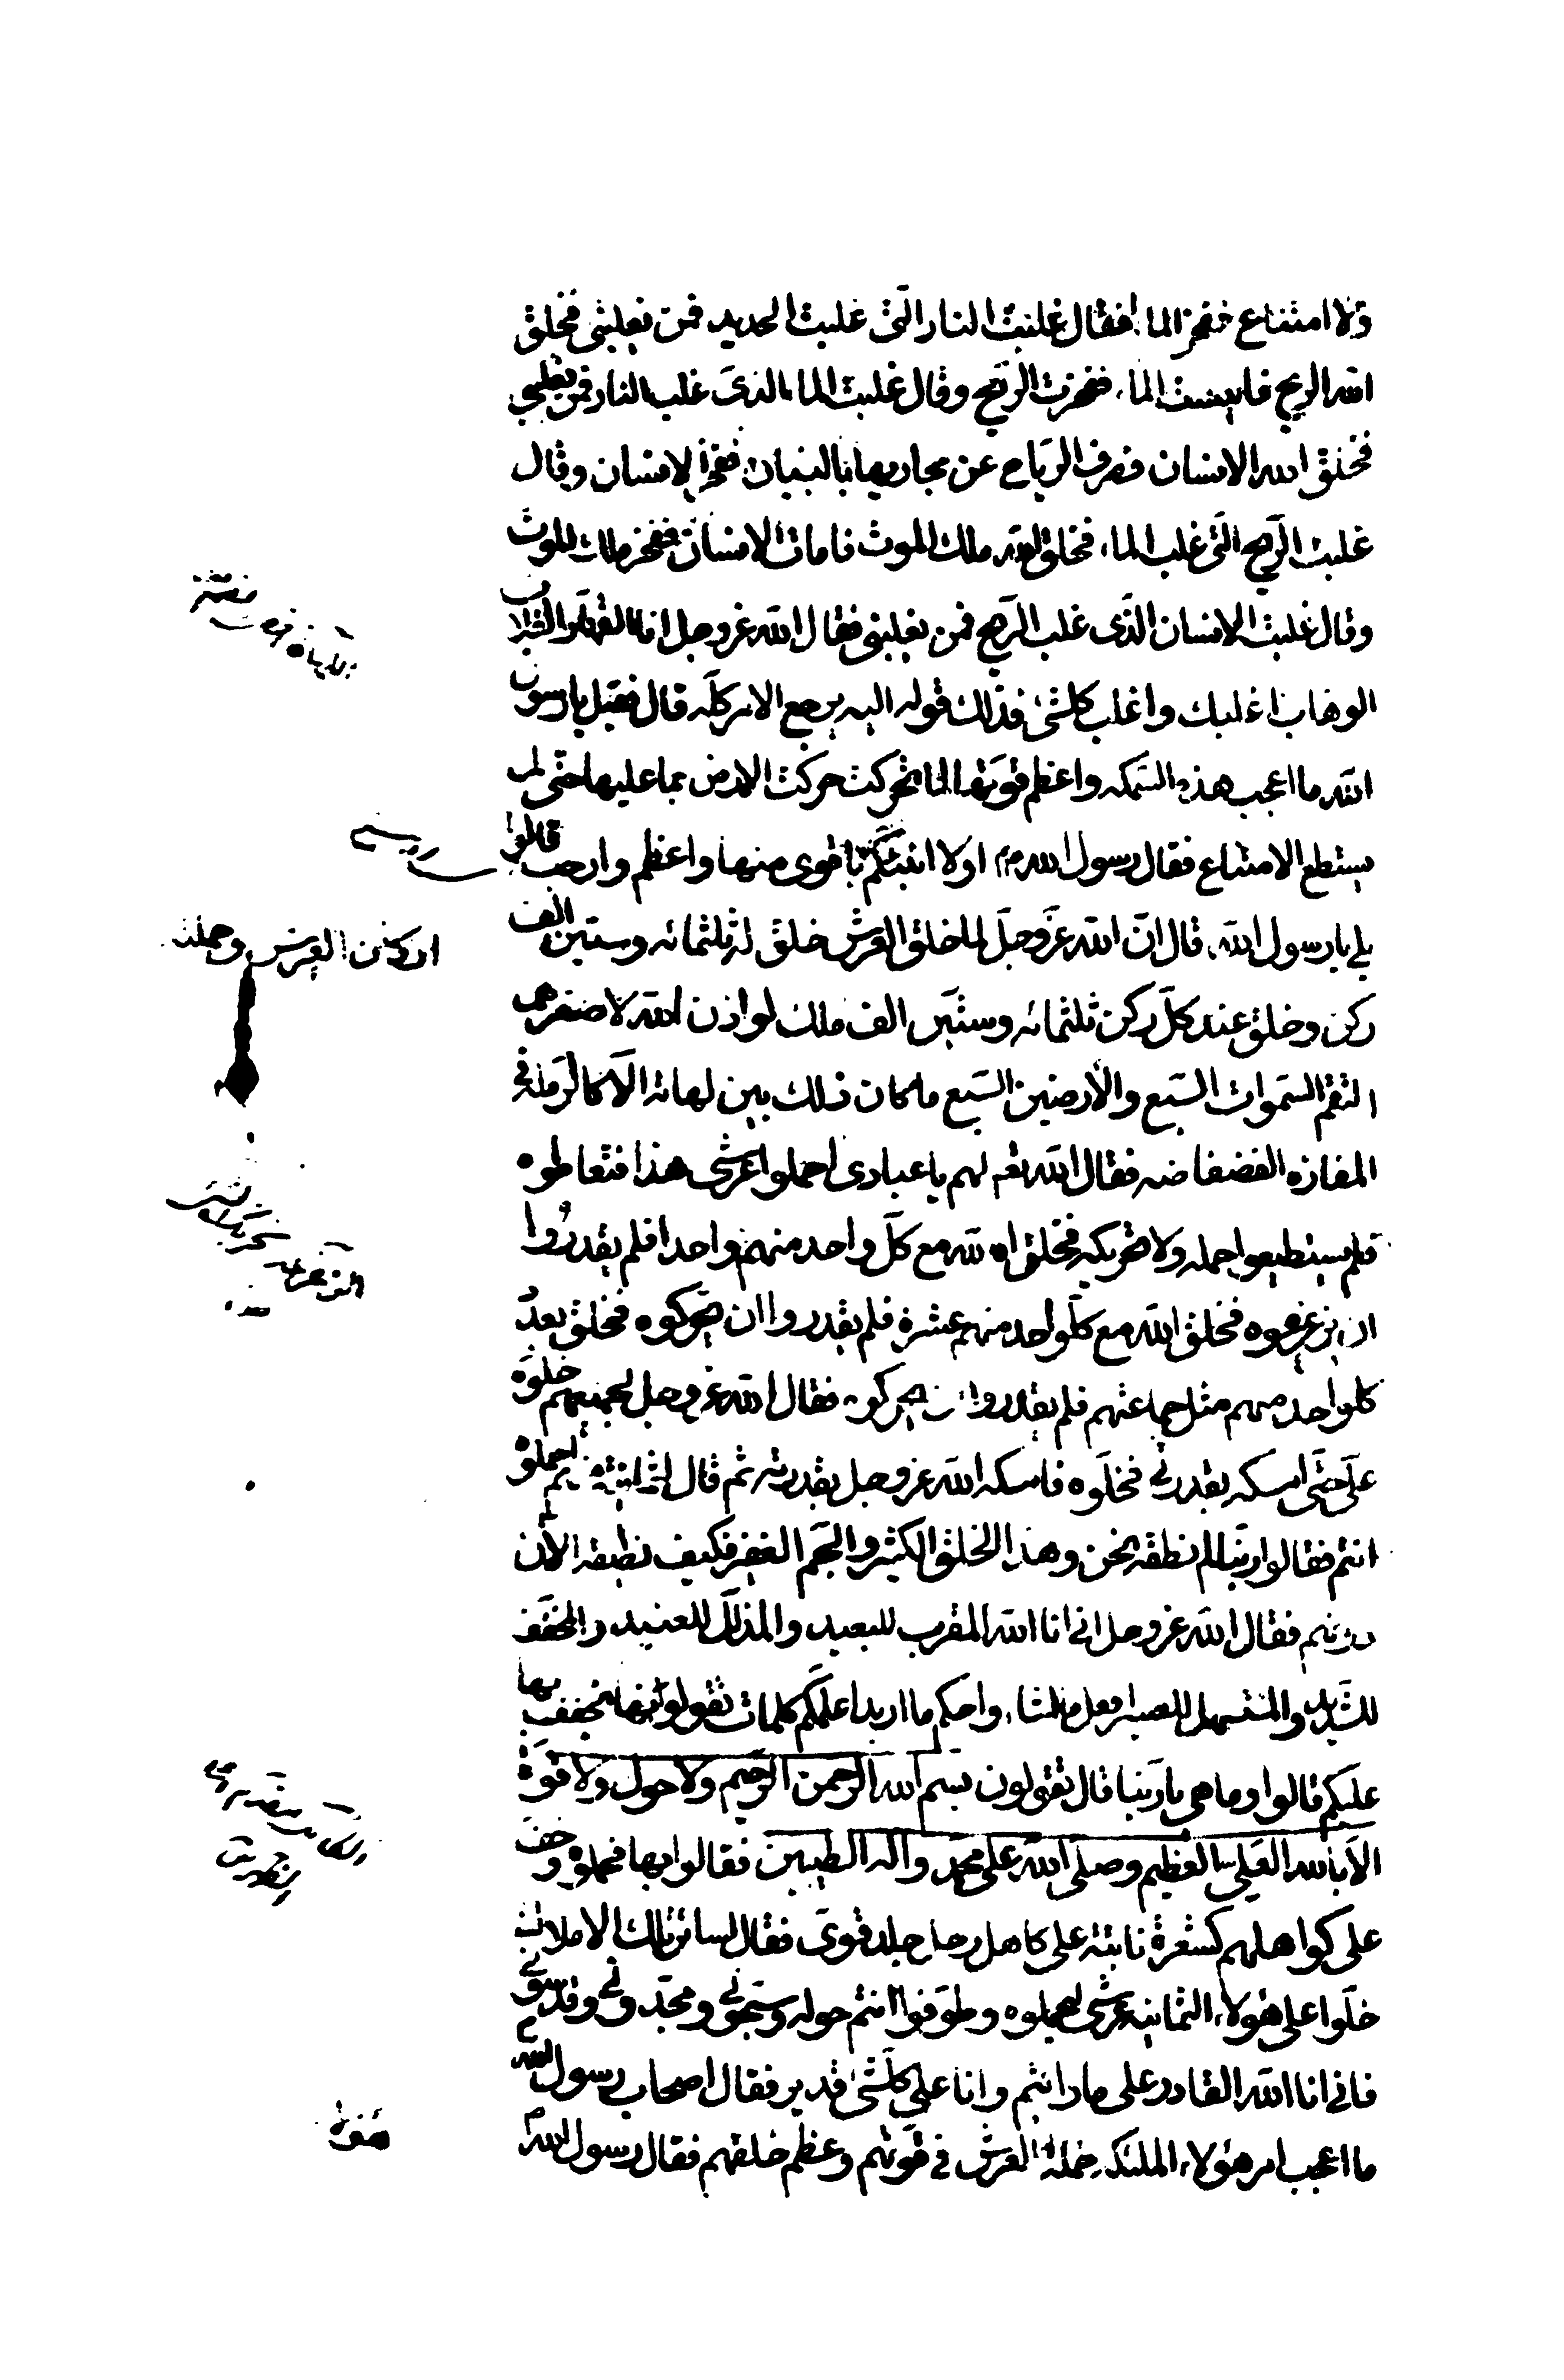 ولا امتناع ففخر الماء فقال غلبت النار التى غلبت الحديد فمن يغلبنى فخلق
الله الريح فايبست الماء ففخرت الريح وقال غلبت الماء الذى غلب النار فمن يغلبنى
فخلق الله الانسان فصرف الرياح عن مجاريها بالبنيان ففخر الانسان وقال
غلبت الريح التى غلب الماء فخلق الله ملك الموت فامات الانسان ففخر ملك الموت
وقال غلبت الانسان الذى غلب الريح فمن يغلبنى فقال الله عز وجل انا القهار الغلاب
الوهاب اغلبك واغلب كلشئ فذلك قوله اليه يرجع الامر كله قال فقيل يارسول
الله ما اعجب هذه السمكه واعظم قوتها لما تحركت حركت الارض بما عليها حتى لم
يستطع الامتناع فقال رسول الله ص اولا انبئكم باقوى منها واعظم وارحب قالوا
بلى يارسول الله قال ان الله عز وجل لما خلق العرش خلق له ثلثمائه وستين الف
اركان العرش وحملته
ركن وخلق عند كل ركن ثلثمائه وستين الف ملك لو اذن الله لاصغرهم
التقم السموات السبع والارضين السبع ماكان ذلك بين لهاته الا كالرمله فى
المفازه الفضفاضه فقال الله تعم لهم ياعبادى احملوا عرشى هذا فتعاطوه
فلم يستطيعوا حمله ولا تحريكه فخلق الله مع كل واحد منهم واحدا فلم يقدروا
ان يزعزعوه فخلق الله مع كلواحد منهم عشرة فلم يقدروا ان يحركوه فخلق بعدد
كلواحد منهم مثل جماعتهم فلم يقدروا ان يحركوه فقال الله عز وجل لجميعهم خلوه
على حتى امسكه بقدرتى فخلوه فامسكه الله عز وجل بقدرته ثم قال لثمانية منهم احملوه
انتم فقالوا ربنا لم نطقه نحن وهذا الخلق الكثير والجم الغفير فكيف نطيقه الان
دونهم فقال الله عز وجل انى انا الله المقرب للبعيد والمذلل للعنيد والمخفف
للشديد والمسهل للعسير افعل ما اشاء واحكم ما اريد اعلمكم كلمات تقولونها يخفف بها
عليكم قالوا وما هى ياربنا قال تقولون بسم الله الرحمن الرحيم ولا حول ولا قوة
الا بالله العلى العظيم وصلى الله على محمد واله الطيبين فقالوا بها فحملوه وخف
على كواهلهم كشعرة نابتة على كاهل رجل جلد قوى فقال لسائر تلك الاملاك
خلوا على هؤلاء الثمانيه عرشى ليحملوه وطوفوا انتم حوله وسبحونى ومجدونى وقدسونى
فانى انا الله القادر على ما رايتم وانا على كلشئ قدير فقال اصحاب رسول الله
ما اعجب امر هؤلاء الملئكه حملة العرش فى قوتهم وعظم خلقهم فقال رسول الله